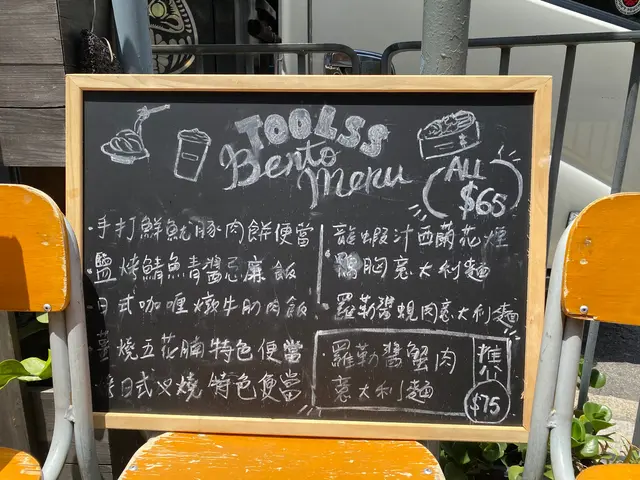 TOOLSS
Bento
Menu
ALL
$65
·手打鮮魷豚肉餅便當
·鹽烤鯖魚青醬忌廉飯
·日式咖喱燉牛肋肉飯
薑燒五花腩特色便當
日式叉燒特色便當
龍蝦汁西蘭花煙
鴨胸意大利麵
·羅勒醬蜆肉意大利麵
羅勒醬蟹肉
意大利麵
推介
$75